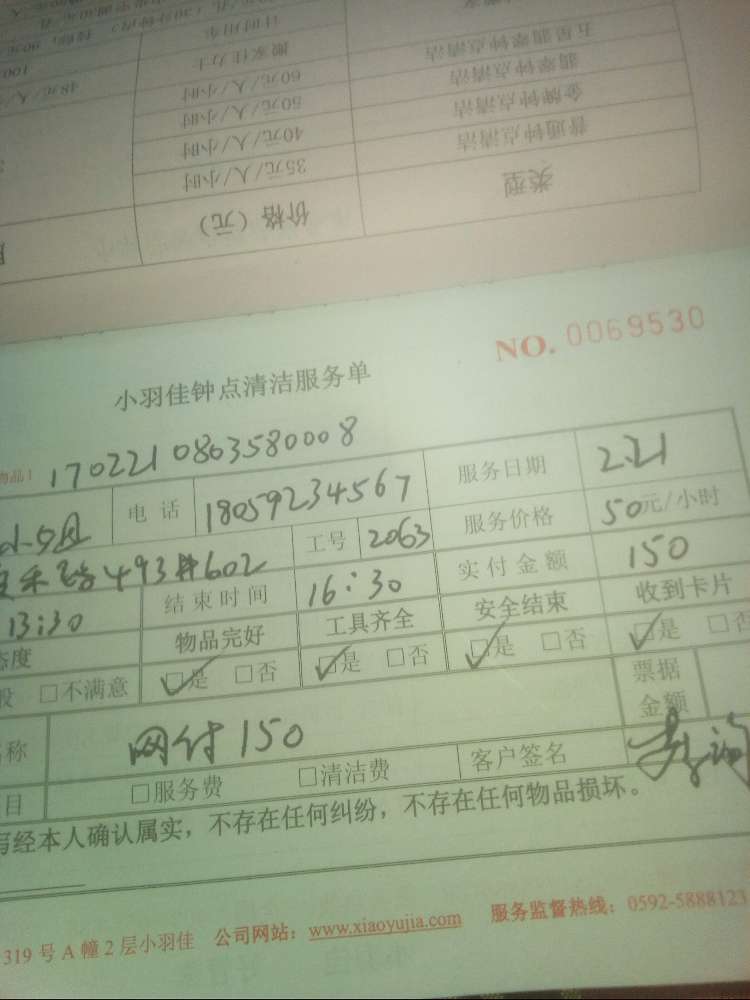 类型 价格（元）
普通钟点清洁 35元/人/小时
金牌钟点清洁 40元/人/小时
翡翠钟点清洁 50元/人/小时
五星翡翠钟点清洁 60元/人/小时 48元/人/
搬家佳力士 100
计时用车
NO. 0069530
小羽佳钟点清洁服务单
物品1 1702210803580008
电话 18059234567 服务日期 2.21
493#602 工号 2063 服务价格 50元/小时
13:30 结束时间 16:30 实付金额 150
态度 物品完好 工具齐全 安全结束 收到卡片
般 □不满意 ☑是 □否 ☑是 □否 ☑是 □否 ☑是 □否
名称 网付150 票据金额
目 □服务费 □清洁费 客户签名
写经本人确认属实，不存在任何纠纷，不存在任何物品损坏。
319号A幢2层小羽佳 公司网站：www.xiaoyujia.com 服务监督热线：0592-5888123